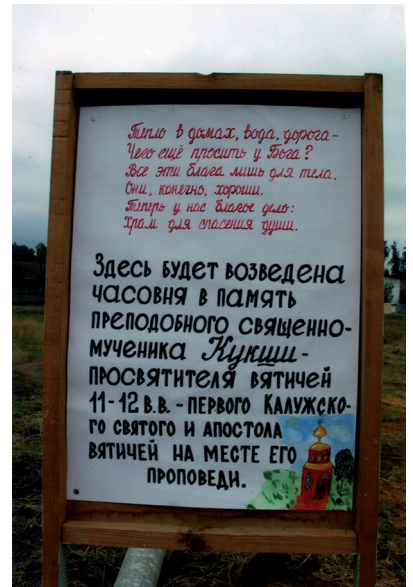 Тепло в домах, вода, дорога-
Чего ещё просить у Бога?
Все эти блага лишь для тела.
Они, конечно, хороши.
Теперь у нас благое дело:
Храм для спасения души.
Здесь будет возведена
часовня в память
преподобного священно-
мученика Кукши-
просвятителя вятичей
11-12 в.в. - первого Калужско-
го святого и апостола
вятичей на месте его
проповеди.